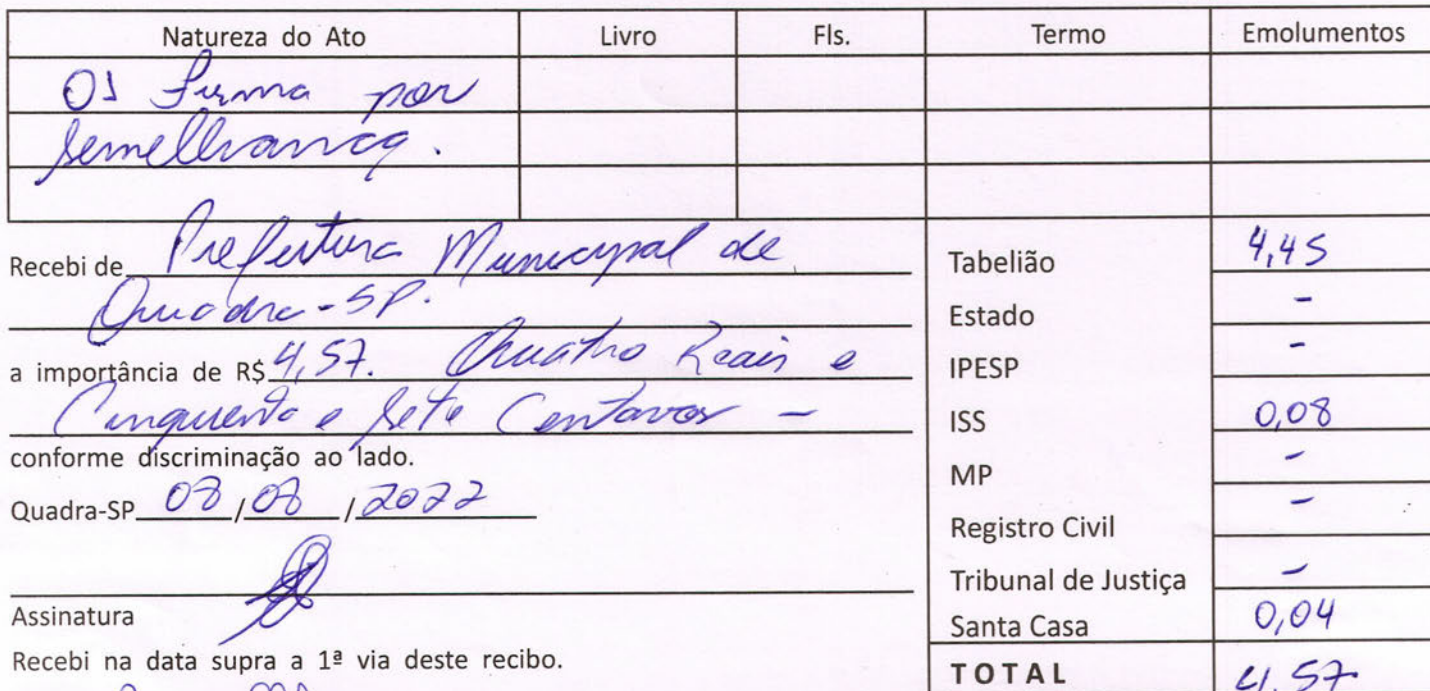 Natureza do Ato Livro Fls. Termo Emolumentos
01 Firma por
semelhança.
Recebi de Prefeitura Municipal de
Quadra-SP.
a importância de R$ 4,57. Quatro Reais e
Cinquenta e Sete Centavos -
conforme discriminação ao lado.
Quadra-SP 08/08/2022
Assinatura
Recebi na data supra a 1ª via deste recibo.
Tabelião 4,45
Estado -
IPESP -
ISS 0,08
MP -
Registro Civil -
Tribunal de Justiça -
Santa Casa 0,04
TOTAL 4,57